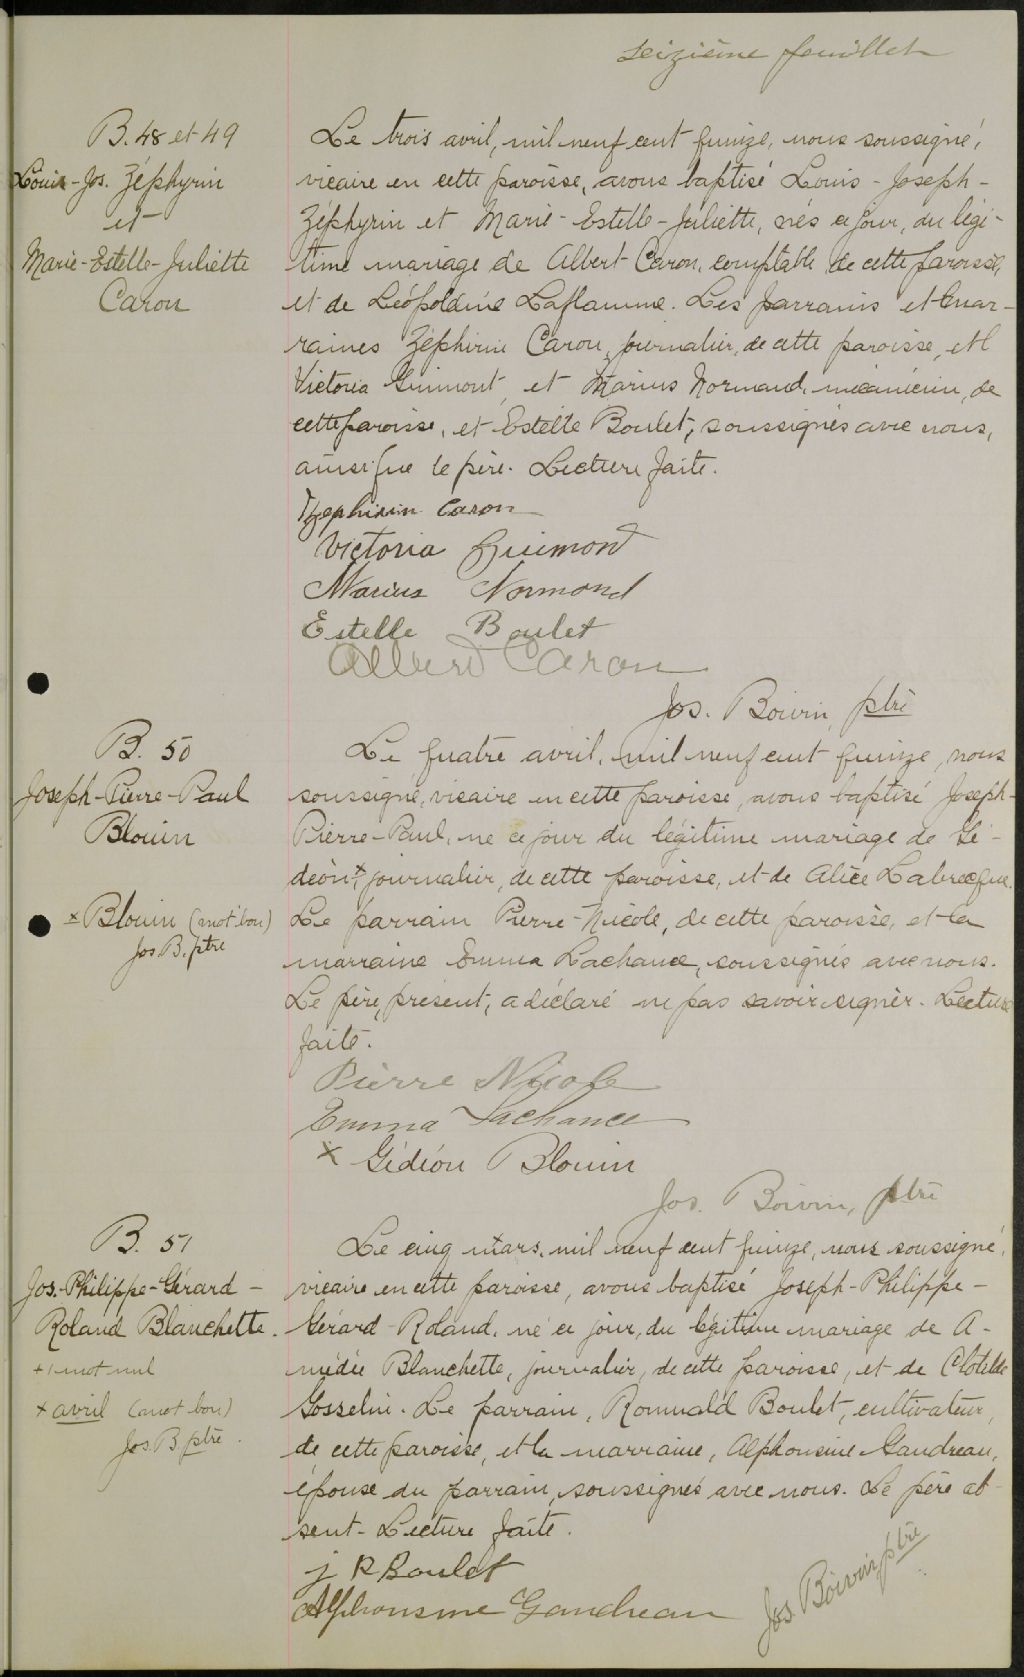 seizième feuillet
B. 48 et 49
Louis-Jos. Zéphyrin
et
Marie-Estelle-Juliette
Caron
Le trois avril, mil neuf cent quinze, nous soussigné,
vicaire en cette paroisse, avons baptisé Louis-Joseph-
Zéphyrin et Marie-Estelle-Juliette, nés ce jour, du légi-
time mariage de Albert Caron, comptable de cette paroisse,
et de Léopoldine Laflamme. Les parrains et mar-
raines Zéphirin Caron, journalier, de cette paroisse, et
Victoria Guimont, et Marius Normand, mécanicien, de
cette paroisse, et Estelle Boulet, soussignés avec nous,
ainsi que le père. Lecture faite.
Zephirin Caron
Victoria Guimond
Marius Normand
Estelle Boulet
Albert Caron
Jos. Boivin, ptre
B. 50
Joseph-Pierre-Paul
Blouin
x Blouin (mot bon)
Jos. B. ptre
Le quatre avril, mil neuf cent quinze, nous
soussigné, vicaire en cette paroisse, avons baptisé Joseph-
Pierre-Paul, né ce jour du légitime mariage de Gé-
déon x, journalier, de cette paroisse, et de Alice Labrecque.
Le parrain Pierre Nicole, de cette paroisse, et la
marraine Emma Lachance, soussignés avec nous.
Le père, présent, a déclaré ne pas savoir signer. Lecture
faite.
Pierre Nicole
Emma Lachance
x Gédéon Blouin
Jos. Boivin, ptre
B. 51
Jos.-Philippe-Gérard-
Roland Blanchette.
+ 1 mot nul
x avril (mot bon)
Jos. B. ptre.
Le cinq mars, mil neuf cent quinze, nous soussigné,
vicaire en cette paroisse, avons baptisé Joseph-Philippe-
Gérard-Roland, né ce jour, du légitime mariage de A-
médée Blanchette, journalier, de cette paroisse, et de Clotilde
Gosselin. Le parrain, Romuald Boulet, cultivateur,
de cette paroisse, et la marraine, Alphonsine Gaudreau,
épouse du parrain, soussignés avec nous. Le père ab-
sent. Lecture faite.
J R Boulet
Alphonsine Gaudreau
Jos. Boivin ptre